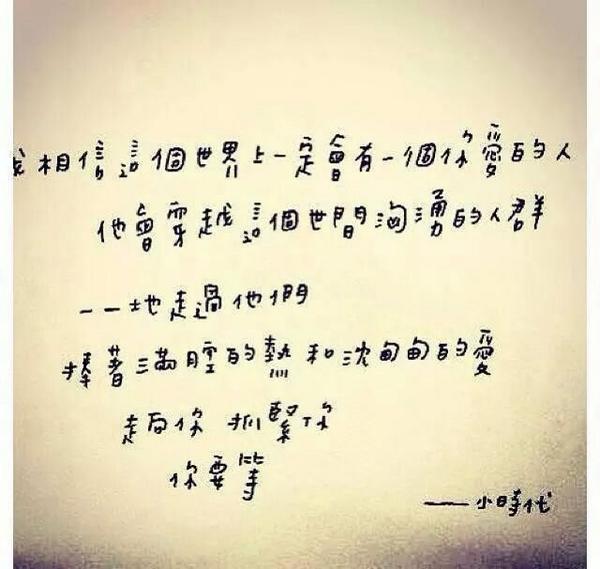 我相信這個世界上一定會有一個你愛的人
他會穿越這個世間洶湧的人群
一一地走過他們
捧著滿腔的熱和沈甸甸的愛
走向你 抓緊你
你要等
——小時代